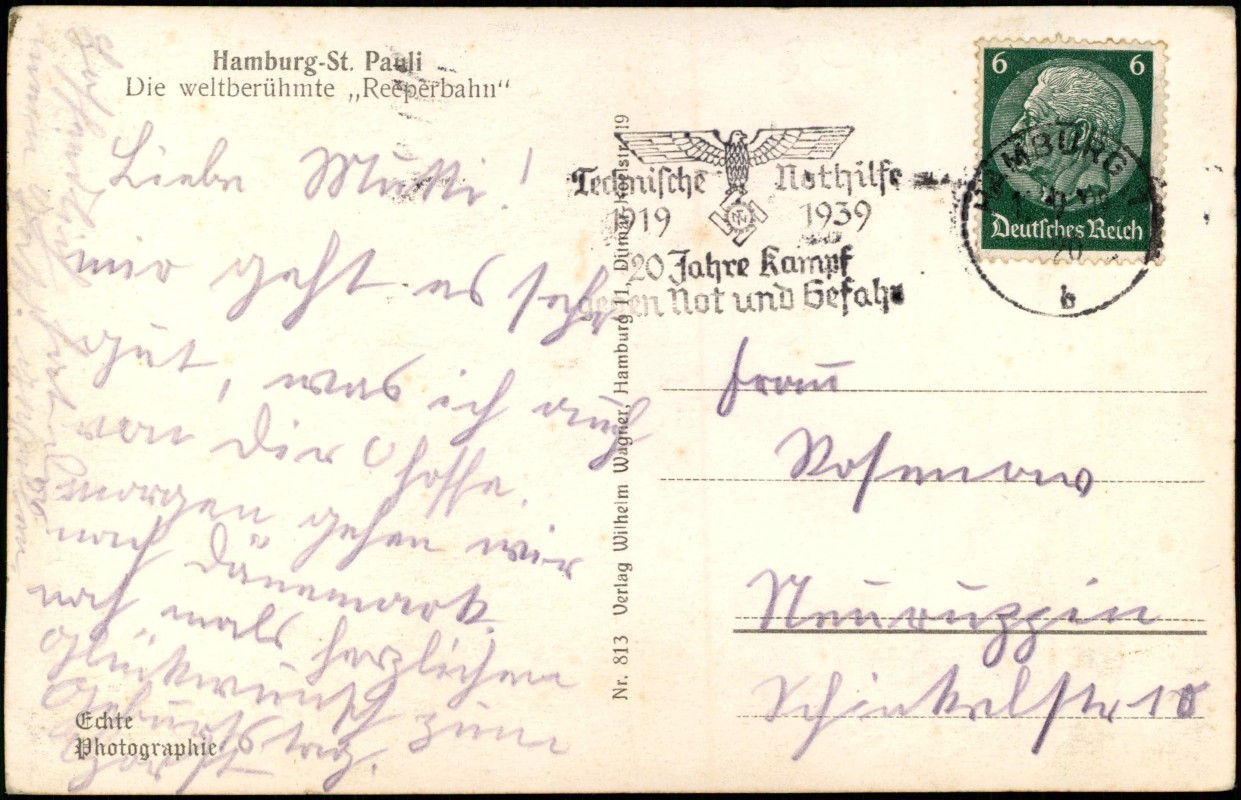 Hamburg-St. Pauli
Die weltberühmte „Reeperbahn"
Liebe Mutti!
mir geht es sehr
gut, was ich auch
von dir hoffe.
morgen gehen wir
nach Dänemark.
noch mals herzlichen
Glückwunsch zum
Geburtstag.
Horst
Echte
Photographie
Nr. 813 Verlag Wilhelm Wagner, Hamburg 11, Ditmar-Koelstr. 19
Technische Nothilfe
1919 1939
20 Jahre Kampf
gegen Not und Gefahr
6 6
Deutsches Reich
HAMBURG 1
20
b
Frau
Rosenow
Neuruppin
Schinkelstr 18